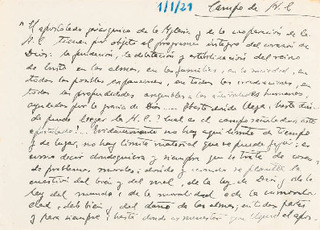 1/1/21 Campo de A.C.
"El apostolado jerárquico de la Iglesia y de la cooperación de la
A.C. tienen por objeto el programa íntegro del corazón de
Dios: la fundación, la dilatación y estabilización del reino
de Cristo en las almas, en las familias, en la sociedad, en
todas las posibles expansiones, en todas las
todas las profundidades asequibles a las humanas,
ayudadas por la gracia de Dios.... Hasta dónde llega, hasta dón-
de puede llegar la A.C.? Cuál es el campo
apostolado?... Evidentemente no hay aquí límite de tiempo
y de lugar, no hay límite material que se puede fijar; es
decir dondequiera y siempre que se trate de cosas,
de problemas morales; donde y cuando se plantee la
cuestión del bien y del mal, de la ley de Dios y de la
ley del mundo; de la moralidad o de la inmorali-
dad, del bien y del daño de las almas, en todas partes
y para siempre y hasta donde es necesario que llegue el apos-